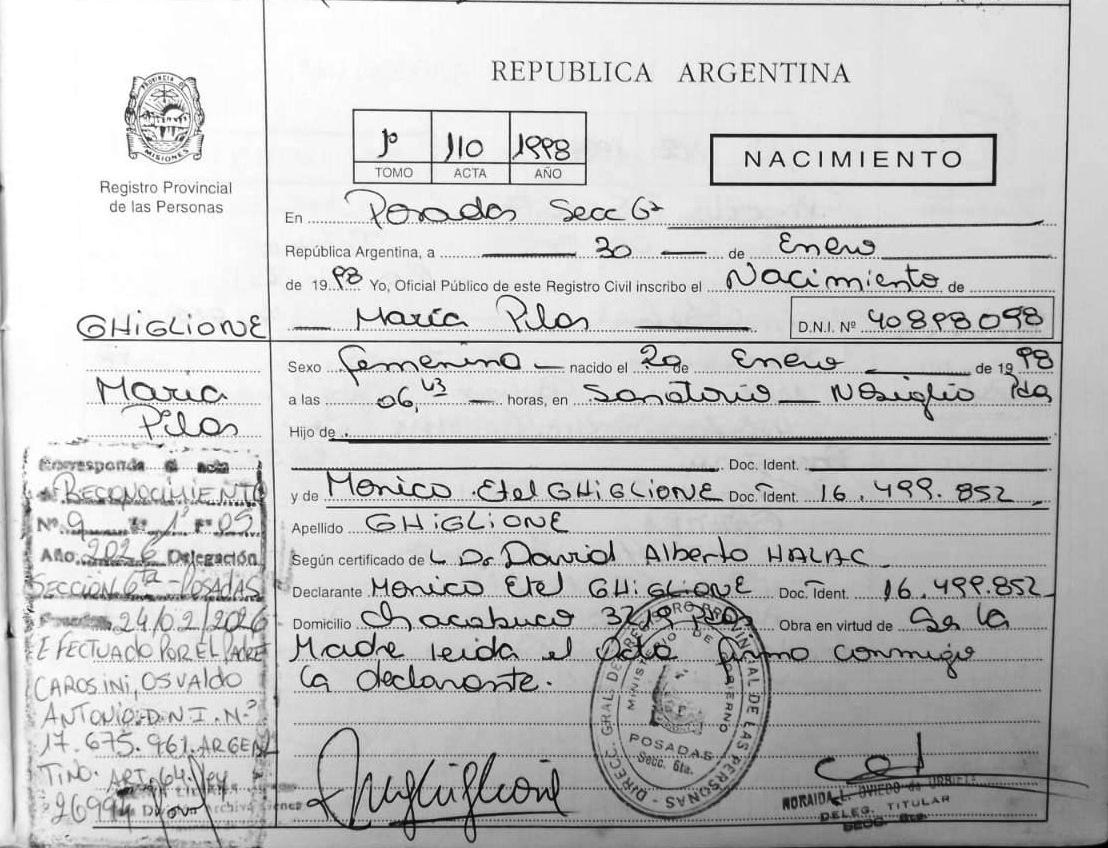 REPUBLICA ARGENTINA
PROVINCIA DE MISIONES
Registro Provincial
de las Personas
1º 110 1998
TOMO ACTA AÑO
NACIMIENTO
En Posadas Secc 6ª
República Argentina, a 30 de Enero
de 1998 Yo, Oficial Público de este Registro Civil inscribo el Nacimiento de
María Pilar D.N.I. Nº 40898098
Sexo femenino nacido el de Enero de 1998
a las 06,43 horas, en Sanatorio Nosiglia Pdas
Hijo de
Doc. Ident.
y de Monica Etel GHIGLIONE Doc. Ident. 16.499.852
Apellido GHIGLIONE
Según certificado de L Dr David Alberto HALAC
Declarante Monica Etel GHIGLIONE Doc. Ident. 16.499.852
Domicilio Chacabuco Obra en virtud de Ser la
Madre leida el Acta firma conmigo
la declarante.
GHIGLIONE
María
Pilar
Corresponde al acta
RECONOCIMIENTO
Nº 9 Tº 1º Fº 05
Año 2026 Delegación
SECCIÓN 6ta - POSADAS
24/02/2026
EFECTUADO POR EL PADRE
CAROSINI, OSVALDO
ANTONIO D.N.I. Nº
17.675.961. ARGEN
TINO. ART. 64. Ley
26994
DIREC. GRAL. DE REGISTRO PROVINCIAL DE LAS PERSONAS
MINISTERIO DE GOBIERNO
POSADAS
Secc. 6ta.
NORAIDA L. OVIEDO de URRIETA
DELEG. TITULAR
SECC. 6ta.